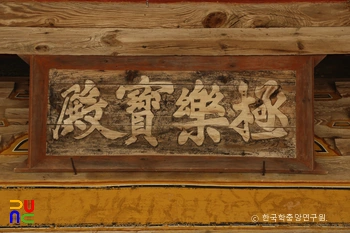 極樂寶殿
© 한국학중앙연구원